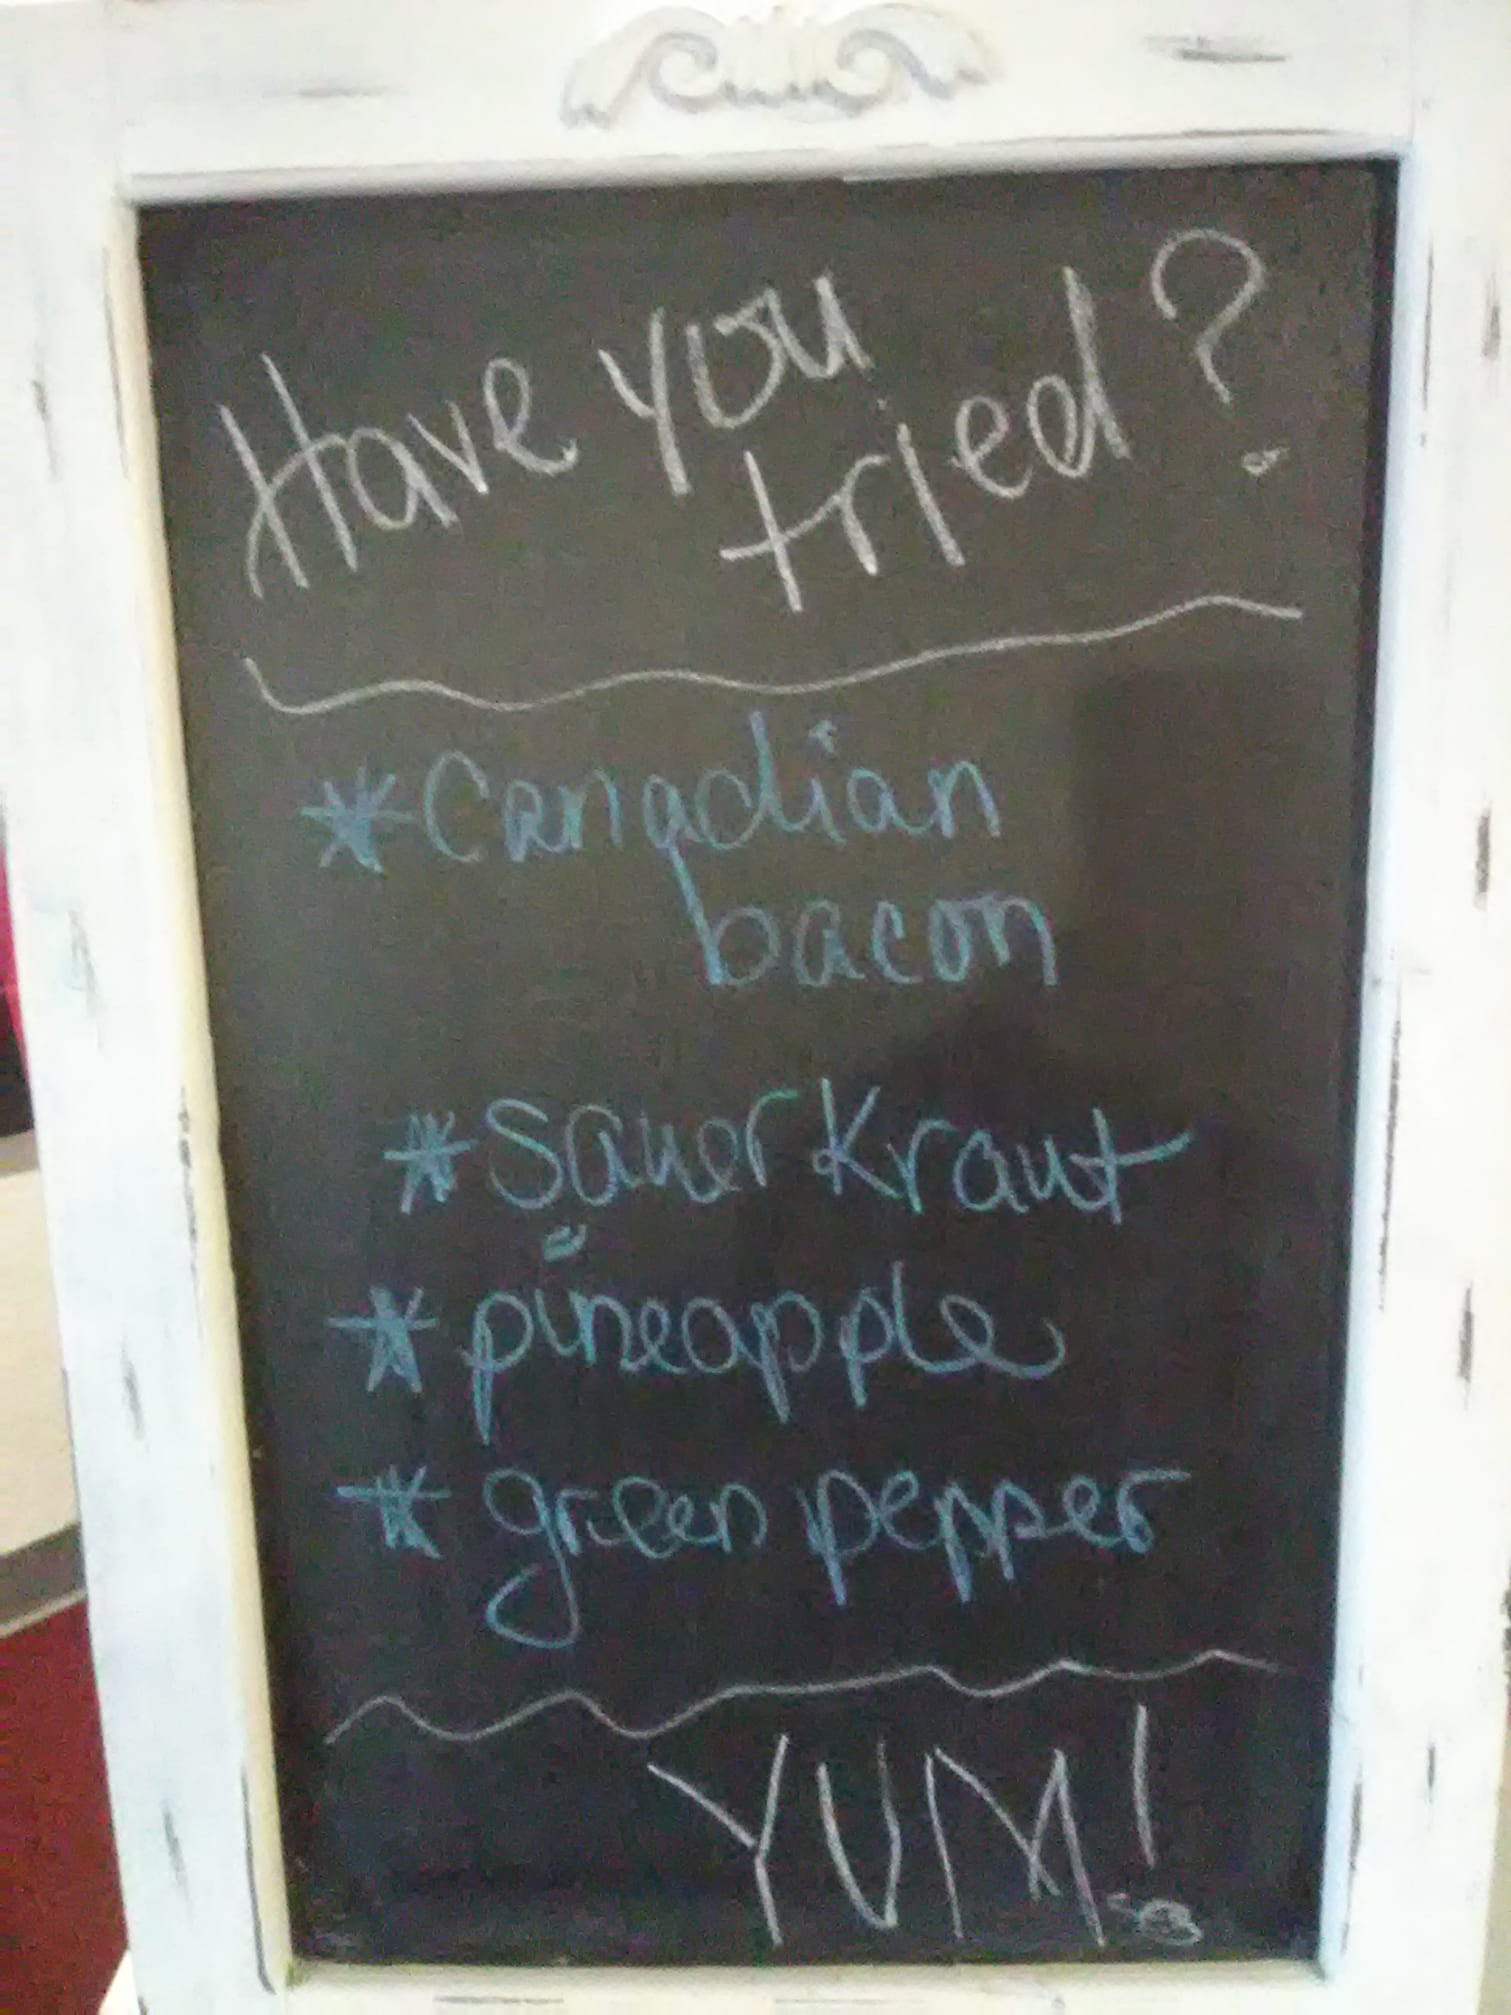 Have you
tried?
*Canadian
bacon
*Sauer Kraut
*pineapple
*green pepper
YUM!